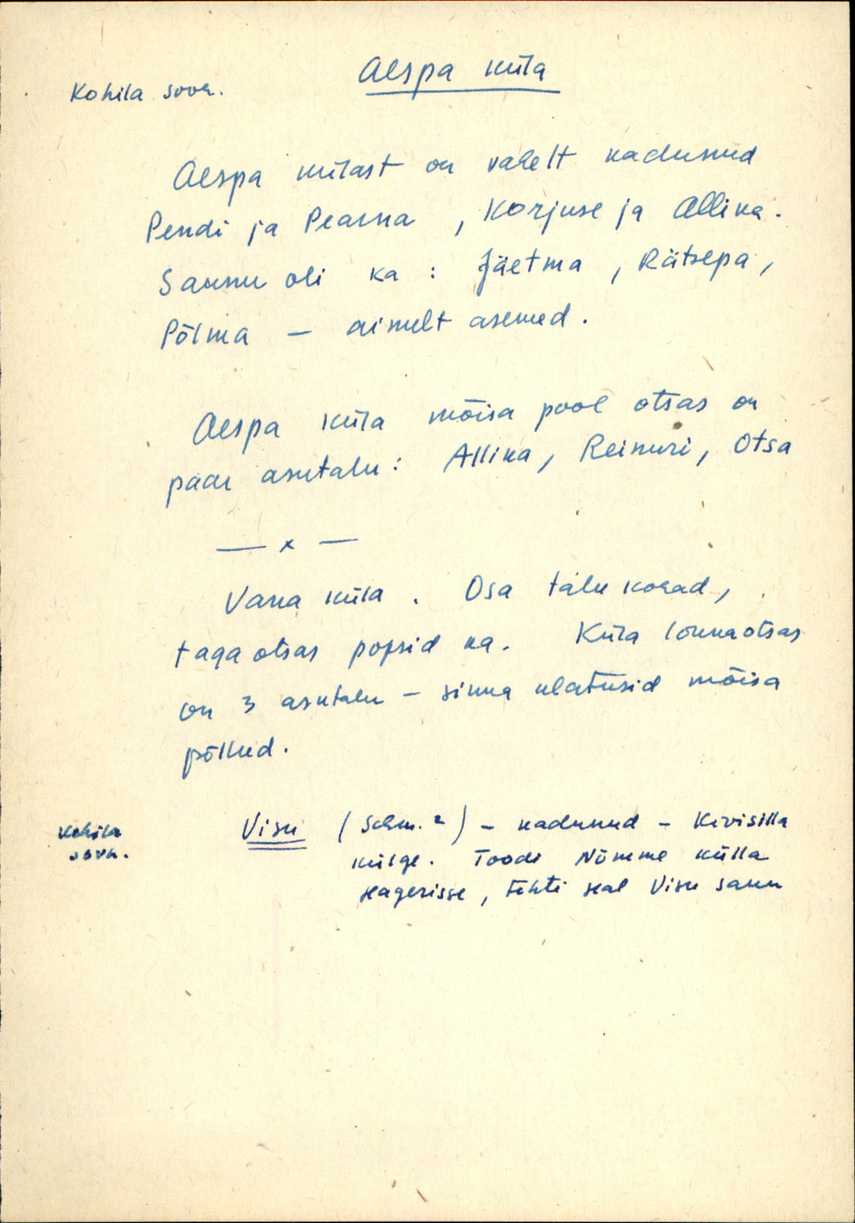 Aespa küla
Kohila sovh.
Aespa külast on vahelt kadunud
Pendi ja Pearna, Korjuse ja Allika.
Saunu oli ka: Jäetma, Rätsepa,
Põlma — ainult asemed.
Aespa küla mõisa pool otsas on
paar asutalu: Allika, Reinuri, Otsa
— x —
Vana küla. Osa talukohad,
tagaotsas popsid ka. Küla lõunaotsas
on 3 asutalu – sinna ulatusid mõisa
põllud.
Kohila sovh.
Visu (Schm. ²) – kadunud – Kivisilla
külge. Toodi Nõmme külla
Hagerisse, tehti seal Visu saun